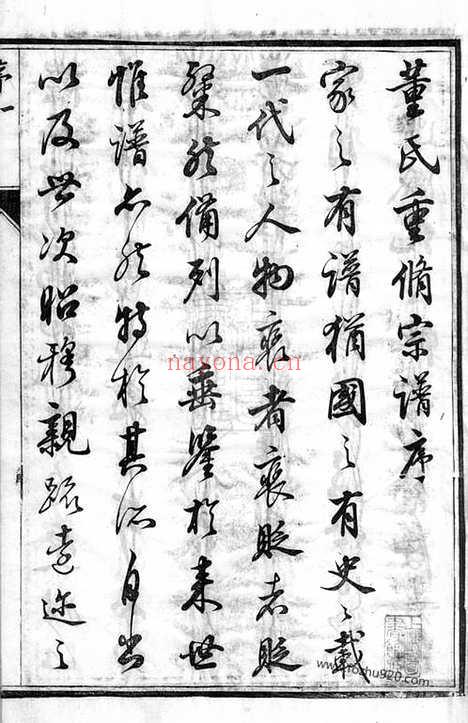 董氏重脩宗譜序
家之有譜猶國之有史史載
一代之人物褒者褒貶者貶
粲然備列以垂鑒於来世
惟譜亦然特於其所自出
以及世次昭穆親疏遠迩之
序一
nayona.cn